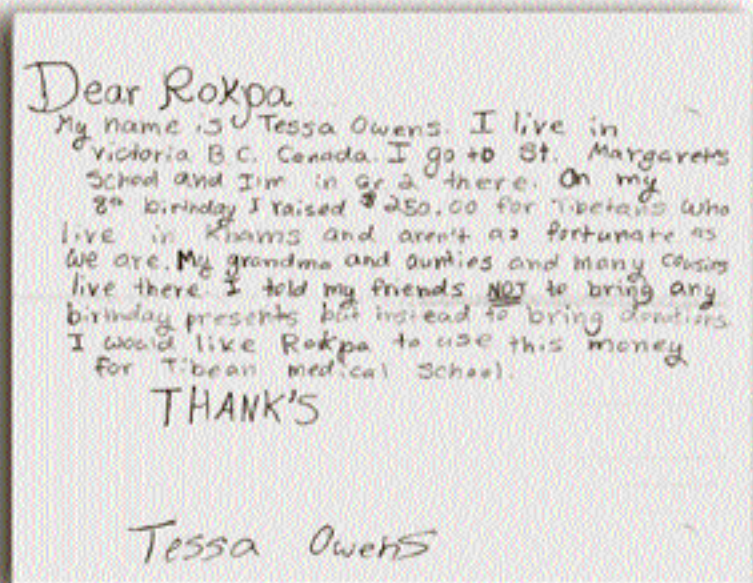 Dear Rokpa
My name is Tessa Owens. I live in
Victoria B.C. Canada. I go to St. Margarets
School and I'm in Gr 2 there. On my
8th birthday I raised $250.00 for Tibetans who
live in Khams and aren't as fortunate as
we are. My grandma and aunties and many cousins
live there. I told my friends NOT to bring any
birthday presents but instead to bring donations.
I would like Rokpa to use this money
for Tibean medical school.
THANK'S
Tessa Owens